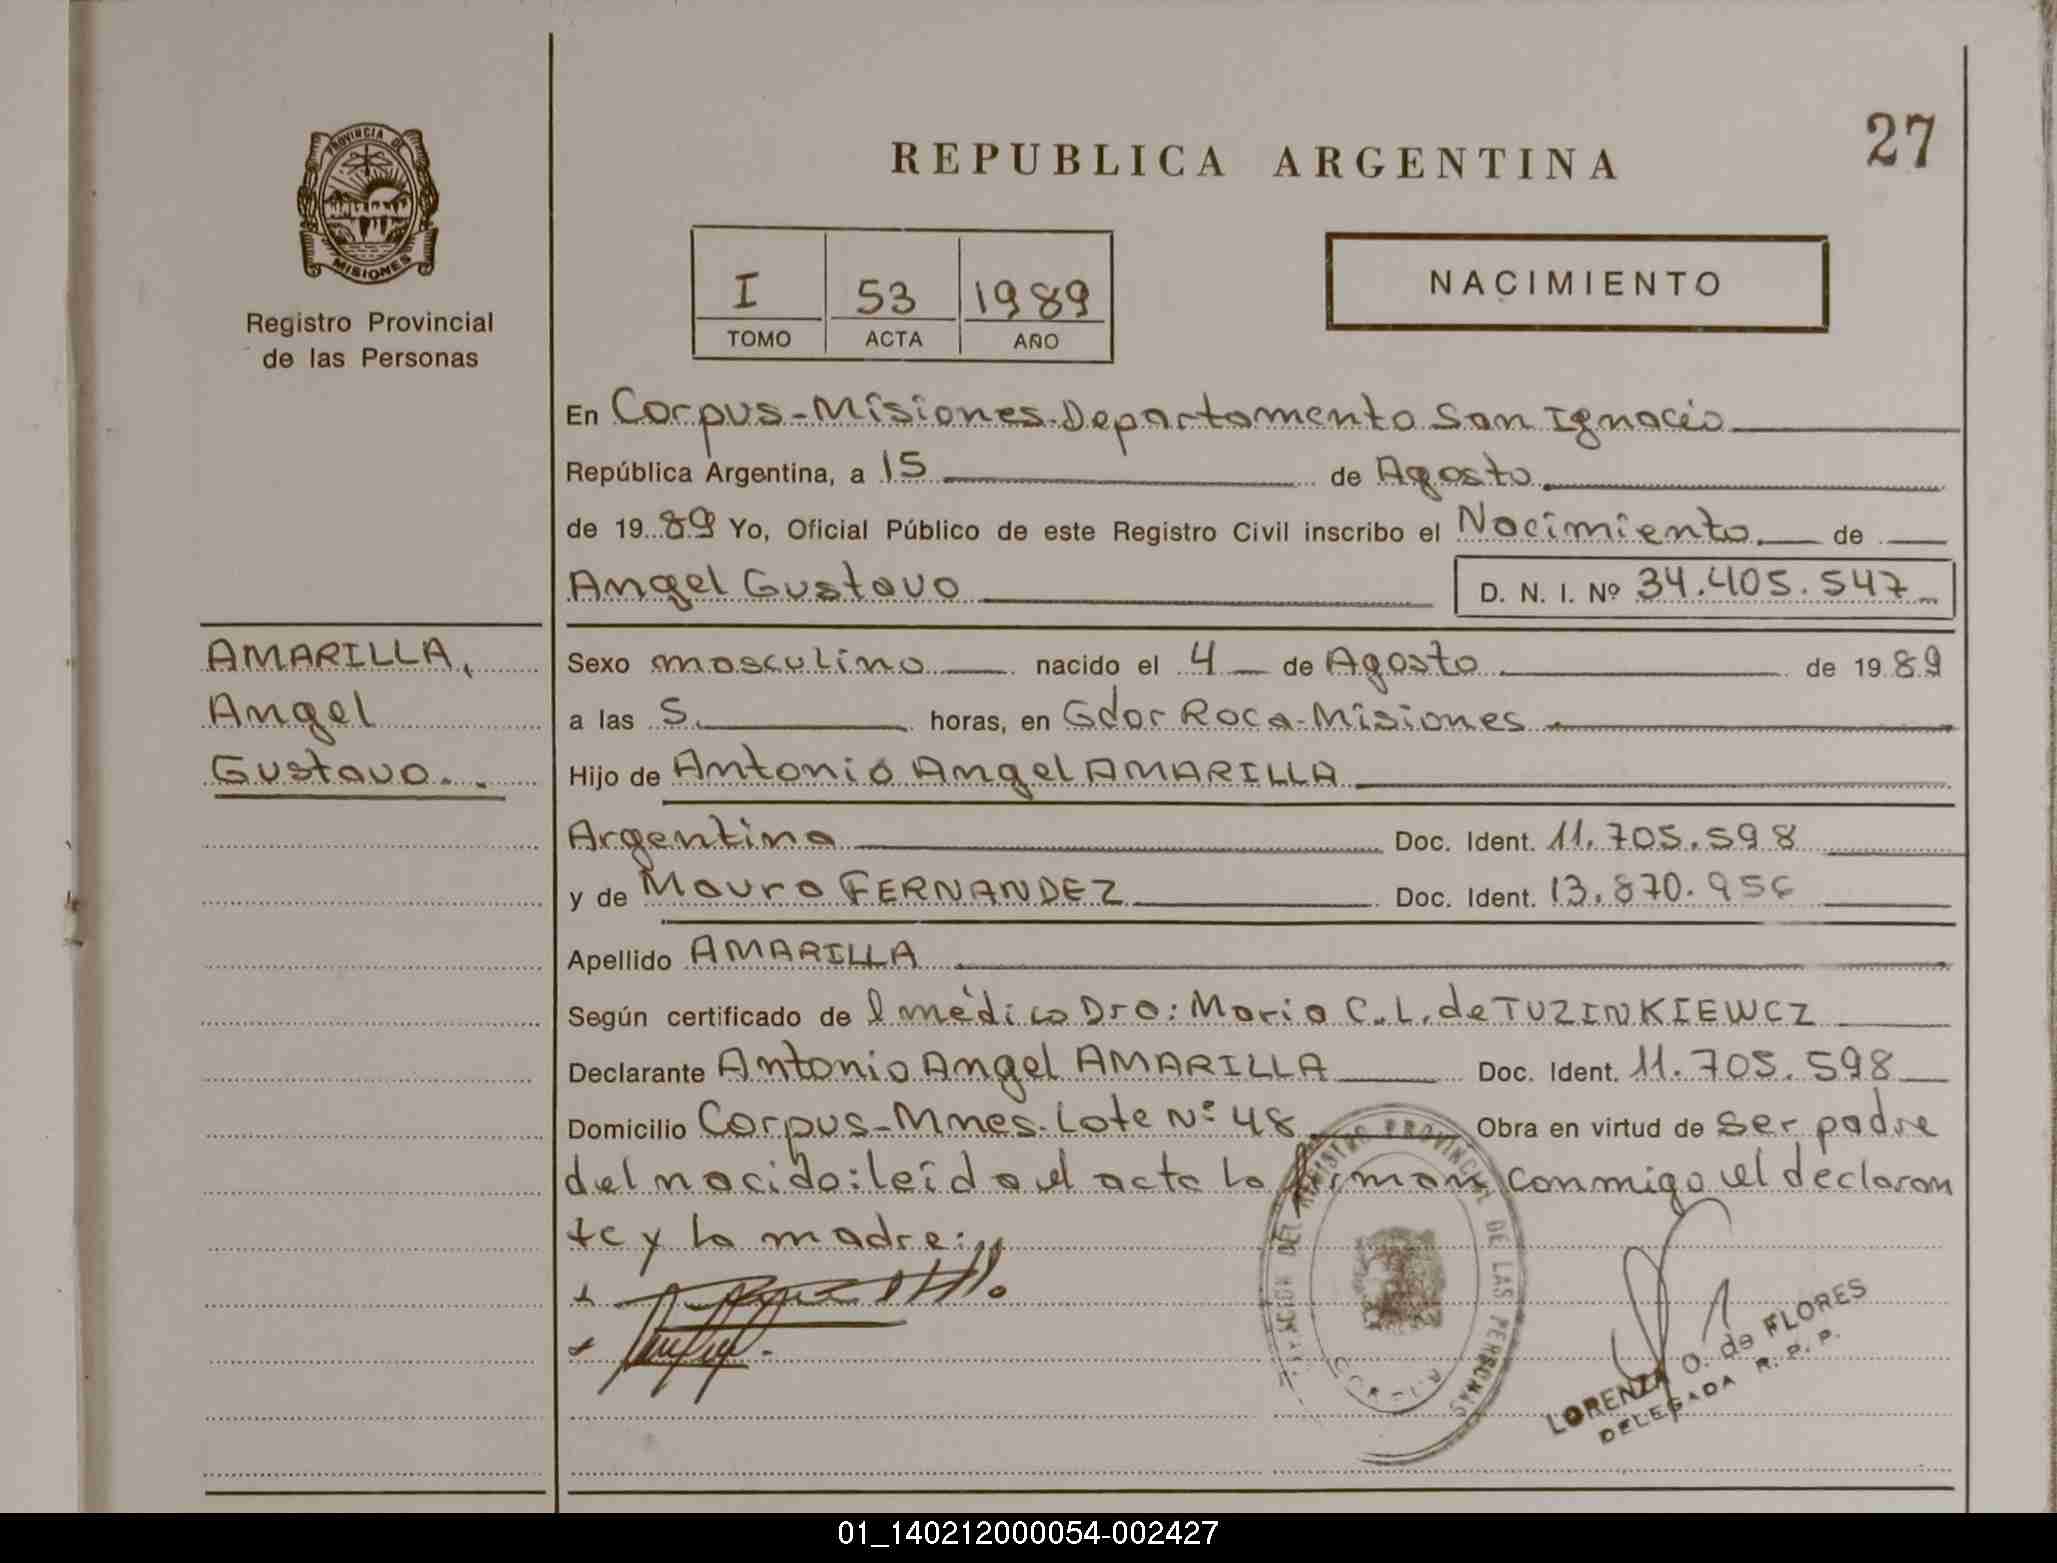 PROVINCIA DE
MISIONES
Registro Provincial
de las Personas
REPUBLICA ARGENTINA
27
I 53 1989
TOMO ACTA AÑO
NACIMIENTO
En Corpus-Misiones-Departamento San Ignacio
República Argentina, a 15 de Agosto
de 1989 Yo, Oficial Público de este Registro Civil inscribo el Nacimiento de
Angel Gustavo D. N. I. Nº 34.405.547
AMARILLA,
Angel
Gustavo.
Sexo masculino nacido el 4 de Agosto de 1989
a las 5. horas, en Gdor Roca-Misiones
Hijo de Antonio Angel AMARILLA
Argentina Doc. Ident. 11.705.598
y de Maura FERNANDEZ Doc. Ident. 13.870.956
Apellido AMARILLA
Según certificado de l médico Dra: Maria C.L. de TUZINKIEWCZ
Declarante Antonio Angel AMARILLA Doc. Ident. 11.705.598
Domicilio Corpus-Mnes. Lote Nº 48 Obra en virtud de ser padre
del nacido: leida el acta la firman conmigo el declaran
te y la madre:
DEL REGISTRO PROVINCIAL DE LAS PERSONAS
LORENZA O. de FLORES
DELEGADA R. P. P.
01_140212000054-002427